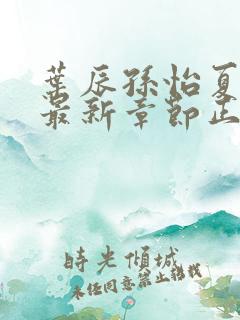 葉辰孫怡夏
最新章節正
時光傾城
未任同意禁止轉載